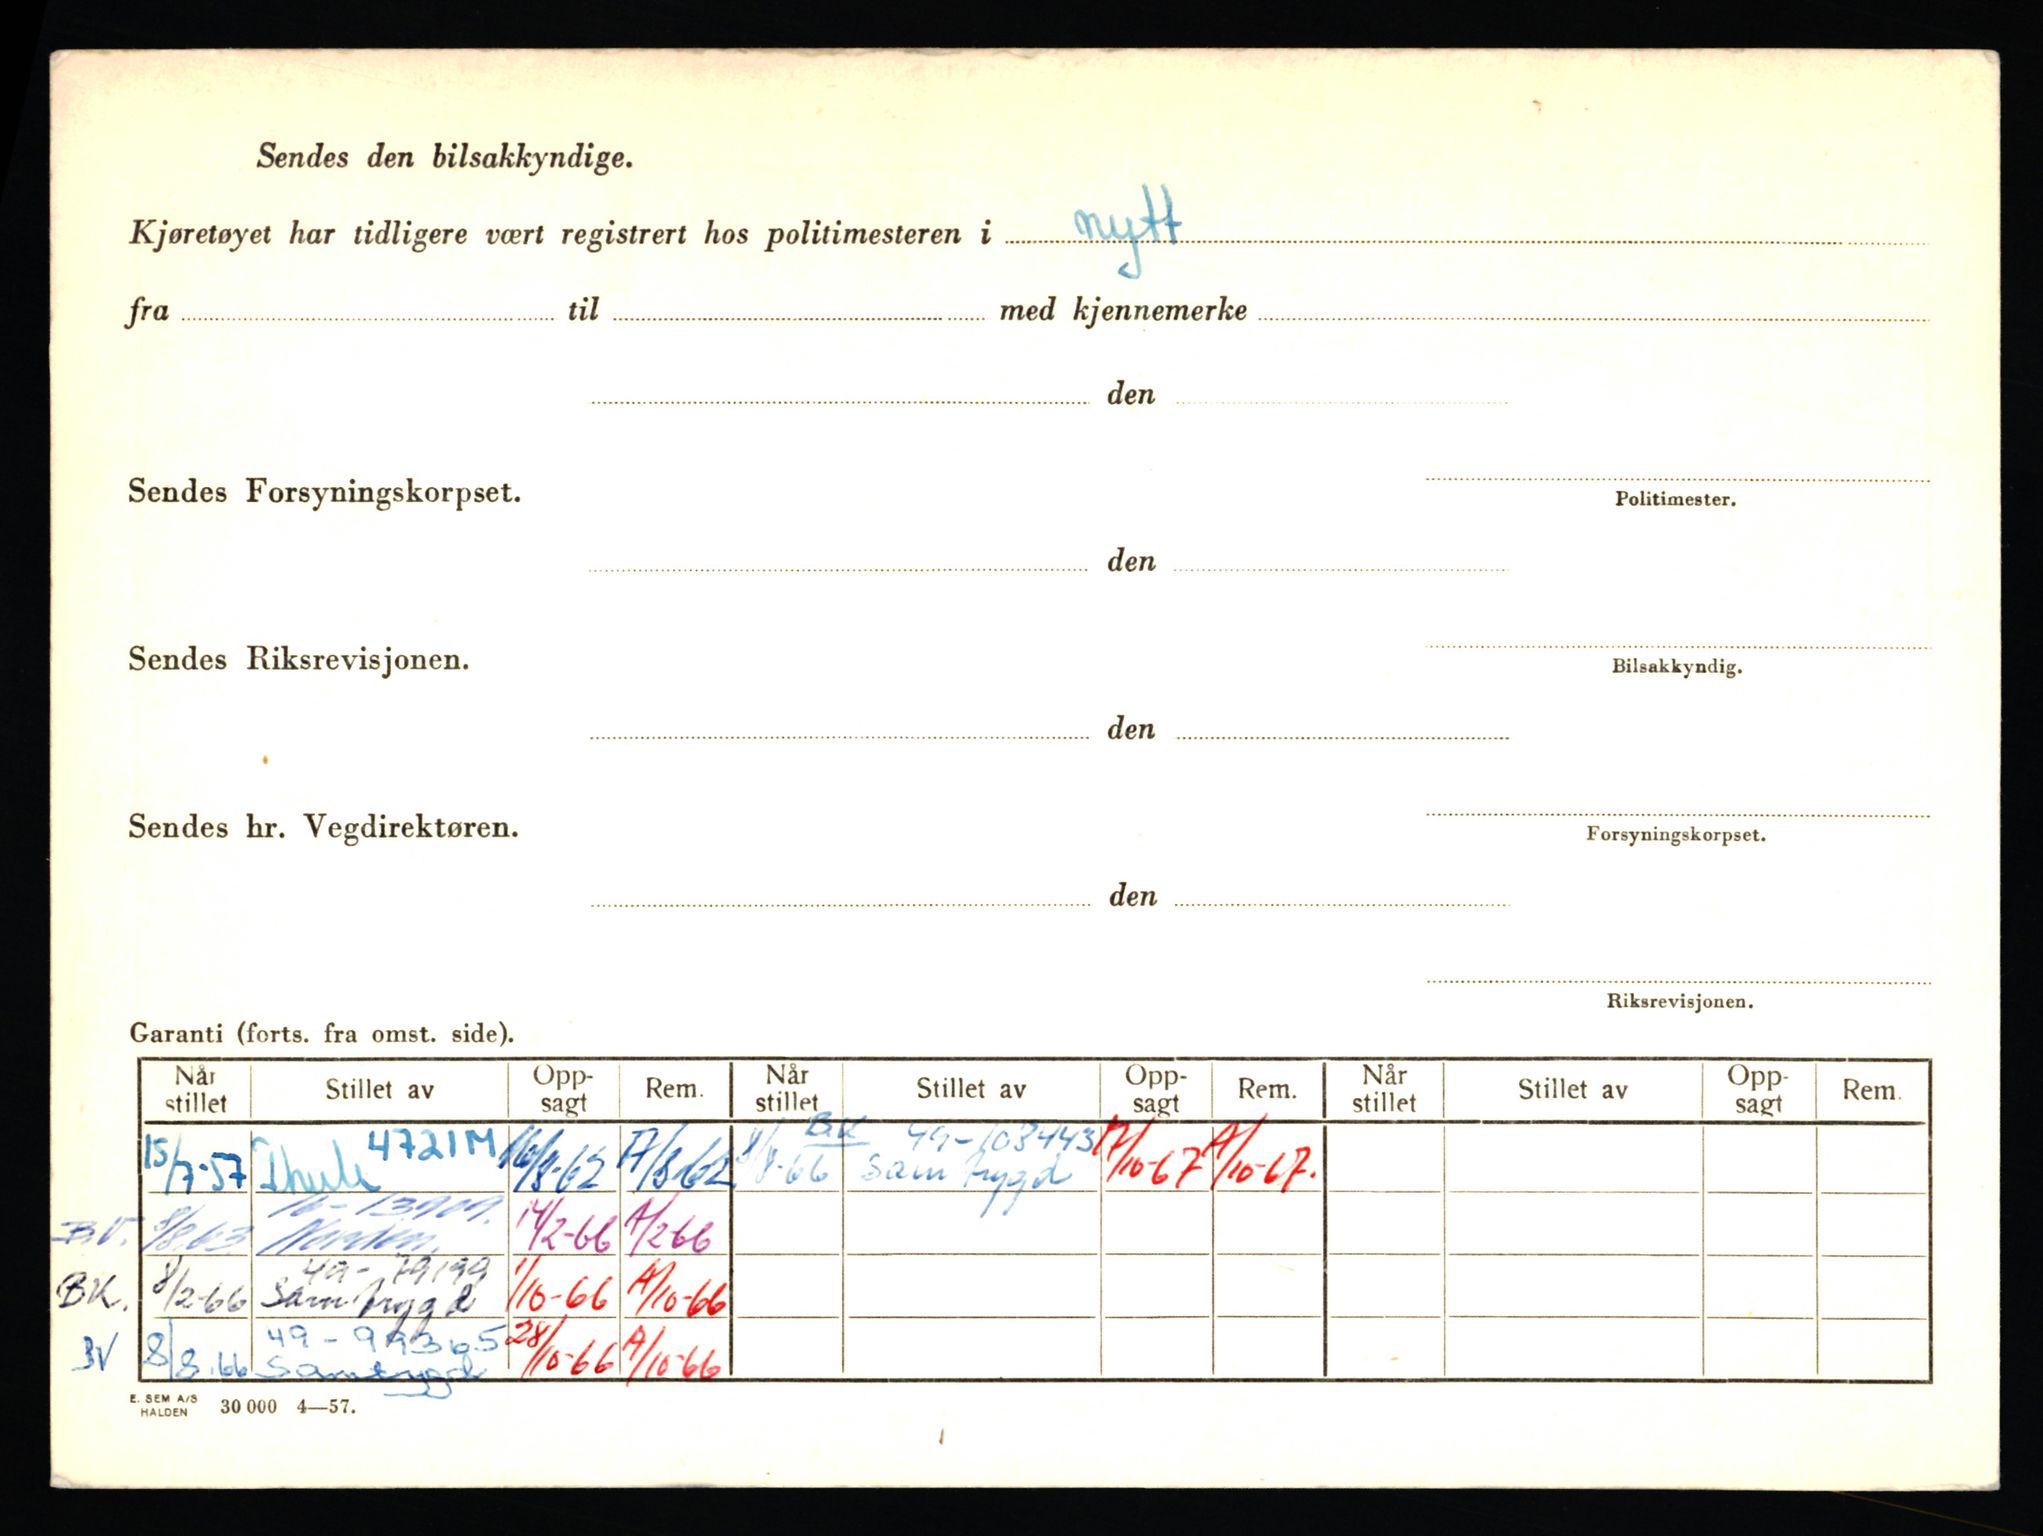 Sendes den bilsakkyndige.
Kjøretøyet har tidligere vært registrert hos politimesteren i nytt
fra til med kjennemerke
den
Sendes Forsyningskorpset.
Politimester.
den
Sendes Riksrevisjonen.
Bilsakkyndig.
den
Sendes hr. Vegdirektøren.
Forsyningskorpset.
den
Riksrevisjonen.
Garanti (forts. fra omst. side).
Når stillet Stillet av Opp-sagt Rem. Når stillet Stillet av Opp-sagt Rem. Når stillet Stillet av Opp-sagt Rem.
4721M BK 49-103443
15/7-57 16/8-62 17/8-62 8/8-66 Samtrygd 17/10-67 A/10-67.
B.V. 8/8.63 Norden. 14/2-66 A/2-66
49-79199
BK. 8/2-66 Samtrygd 1/10-66 A/10-66
49-99365
BV 8/8.66 Samtrygd 28/10-66 A/10-66
E. SEM A/S
HALDEN 30 000 4—57.